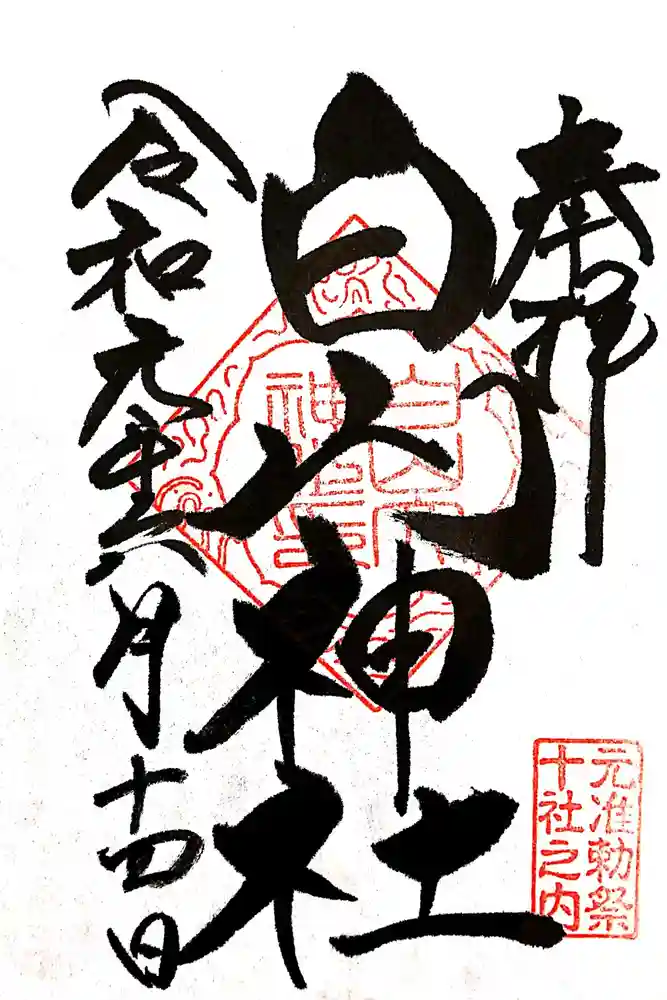 奉拝
白山神社
令和元年六月十四日
元准勅祭
十社之内